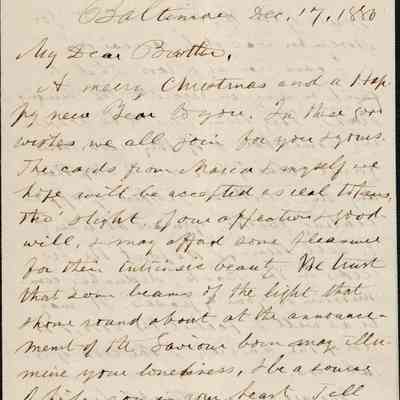 Baltimore Dec. 17, 1880
My Dear Brother,
A merry Christmas and a Hap-
py new Year to you. In these our
wishes, we all join for you & yours.
The cards from Maria & myself we
hope will be accepted as real tokens,
tho' slight, of our affection & good
will, & may afford some pleasure
for their intrinsic beauty. We trust
that some beams of the light that
shone round about at the announce-
ment of the Saviour born may illu-
mine your loneliness, & be a source
in your heart